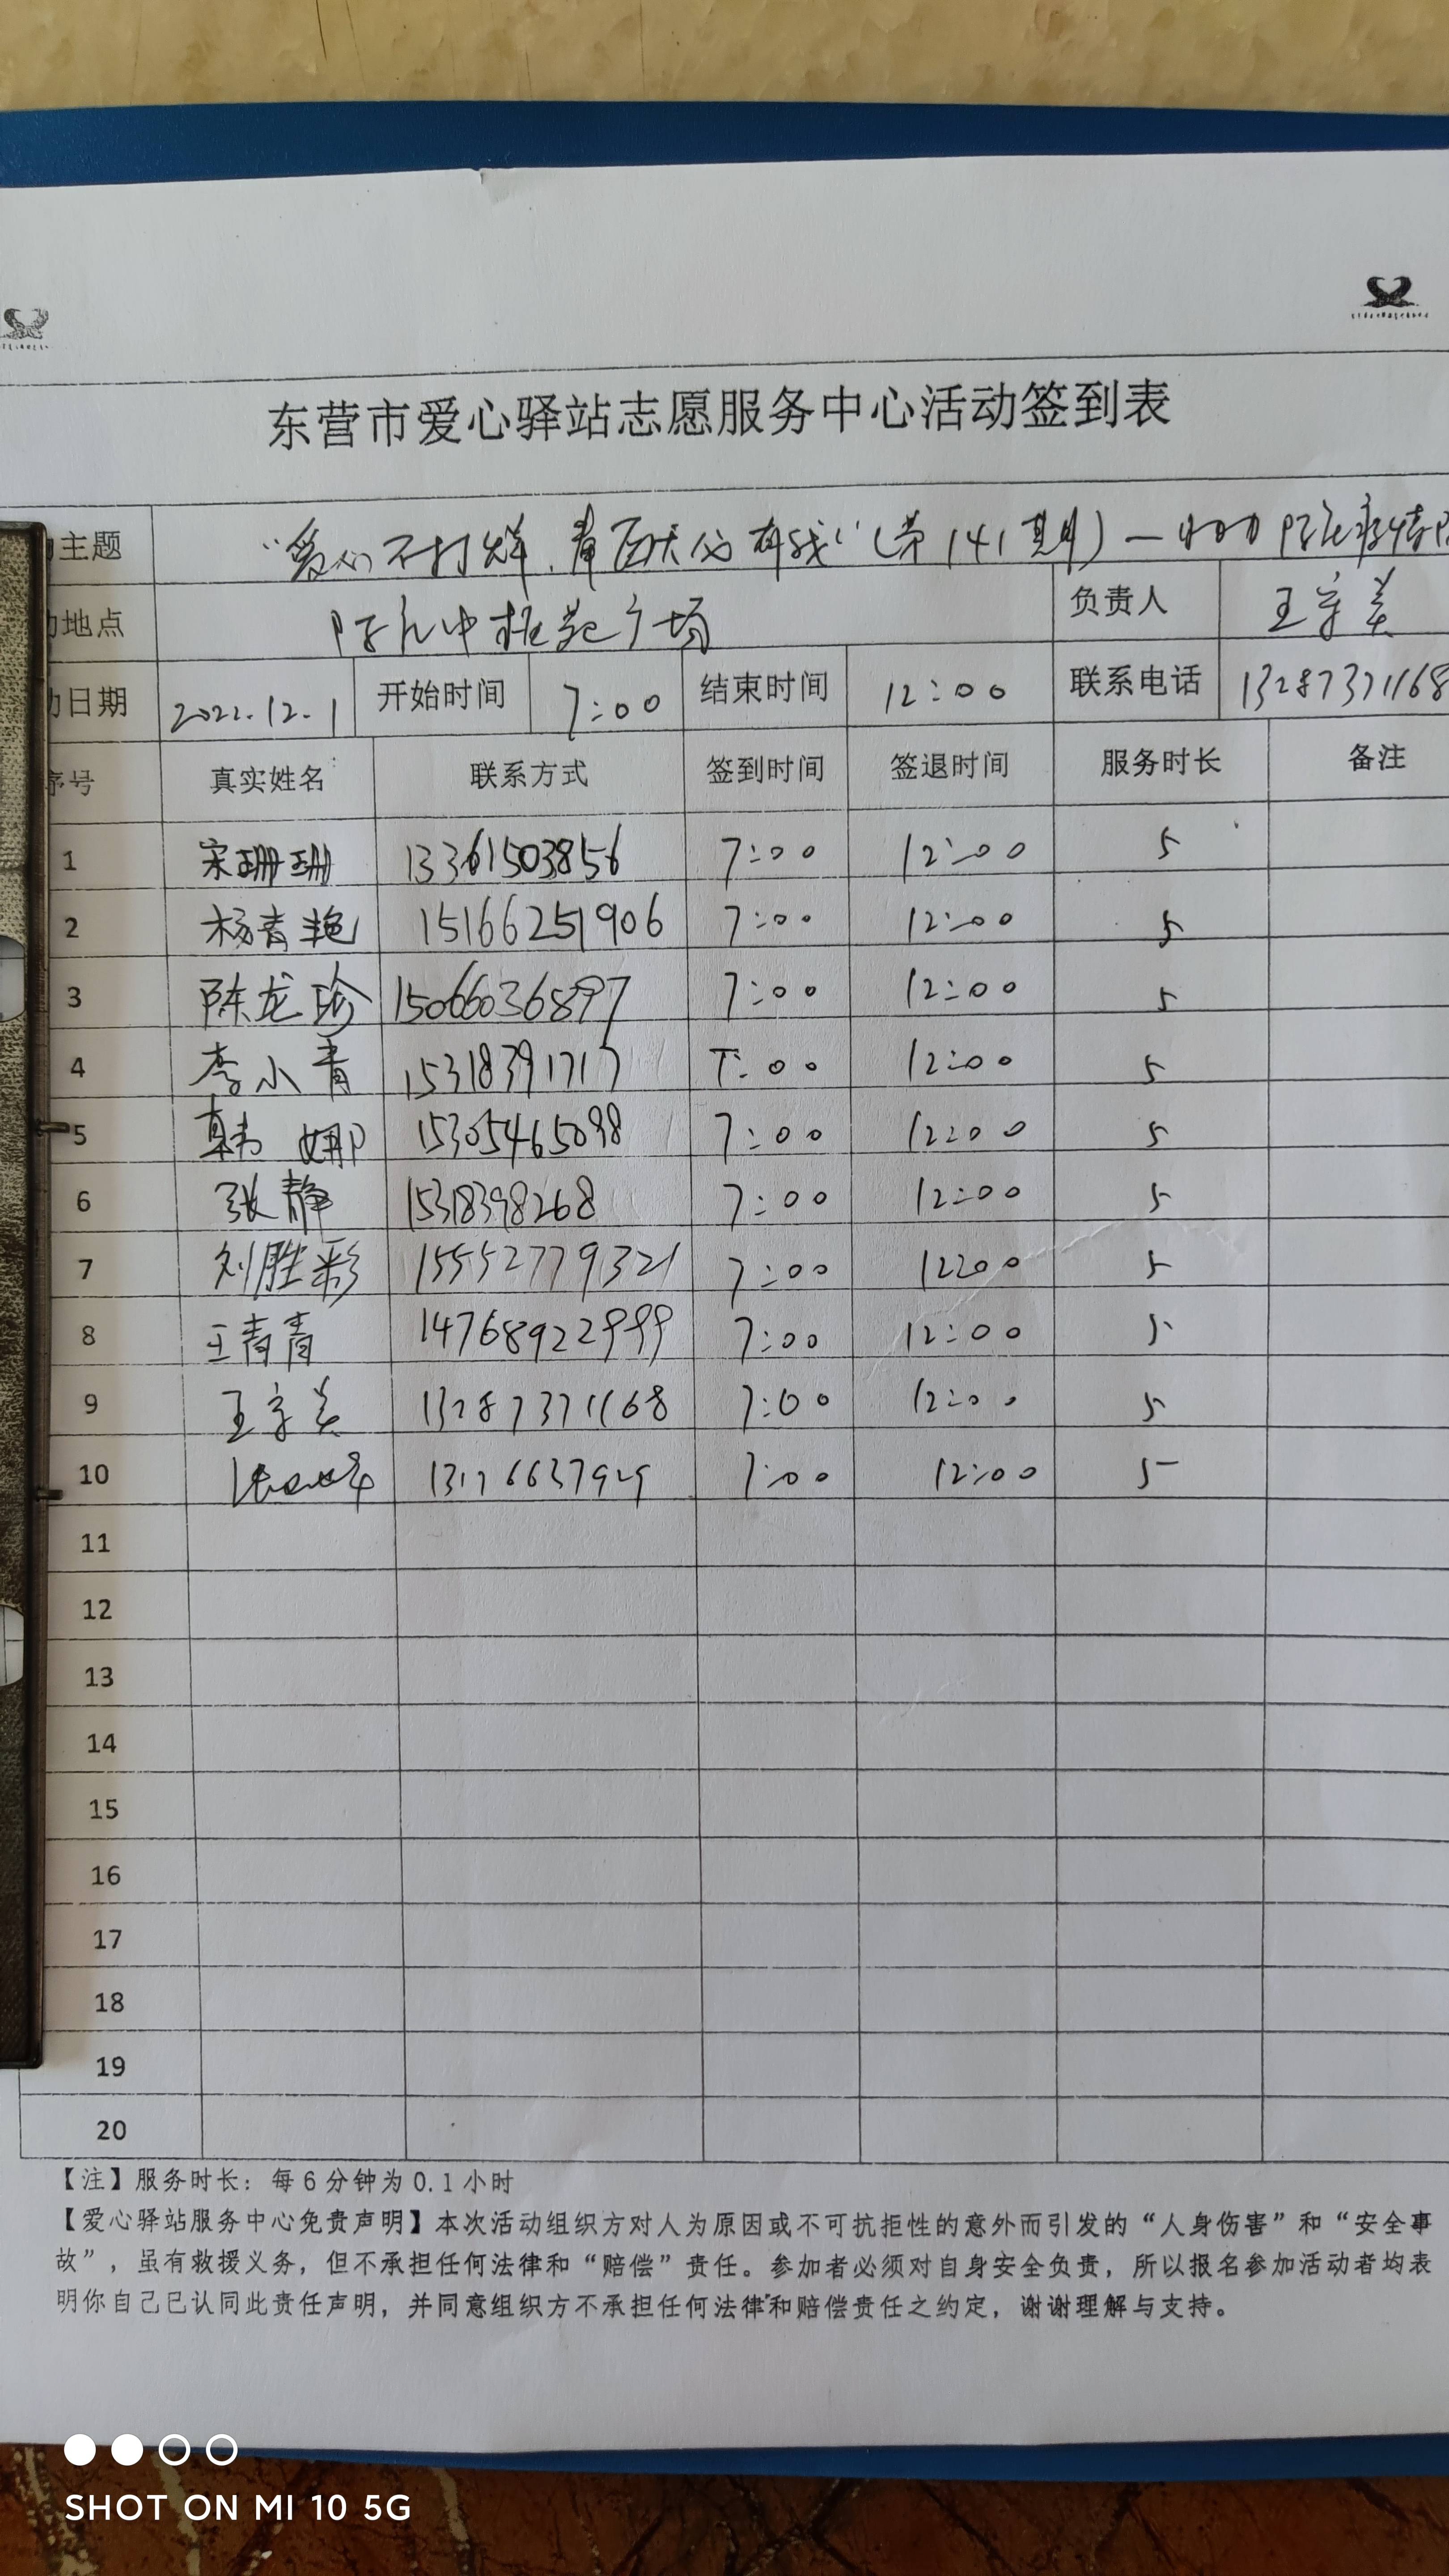 东营市爱心驿站志愿服务中心活动签到表
主题 “爱心不打烊, 有我”(第141期)一
地点 广场 负责人 王字美
日期 2022.12.1 开始时间 7:00 结束时间 12:00 联系电话 13287371168
序号 真实姓名 联系方式 签到时间 签退时间 服务时长 备注
1 宋珊珊 13361503856 7:00 12:00 5
2 杨青艳 15166251906 7:00 12:00 5
3 陈龙珍 15066036897 7:00 12:00 5
4 李小青 15318391717 7:00 12:00 5
5 韩娜 15305465098 7:00 12:00 5
6 张静 15318398268 7:00 12:00 5
7 刘胜彩 15552779321 7:00 12:00 5
8 王青青 14768922999 7:00 12:00 5
9 王字美 13287371168 7:00 12:00 5
10 7:00 12:00 5
11
12
13
14
15
16
17
18
19
20
【注】服务时长：每6分钟为0.1小时
【爱心驿站服务中心免责声明】本次活动组织方对人为原因或不可抗拒性的意外而引发的“人身伤害”和“安全事
故”，虽有救援义务，但不承担任何法律和“赔偿”责任。参加者必须对自身安全负责，所以报名参加活动者均表
明你自己已认同此责任声明，并同意组织方不承担任何法律和赔偿责任之约定，谢谢理解与支持。
SHOT ON MI 10 5G